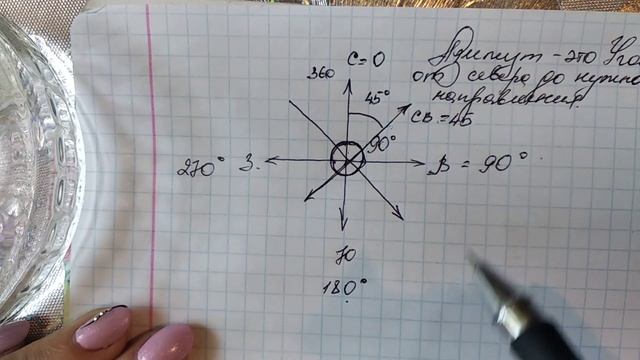 Азимут - это Угол
от севера до нужно
направления.
С = 0
360
45°
СВ = 45
90°
270° З.
В = 90°
Ю
180°